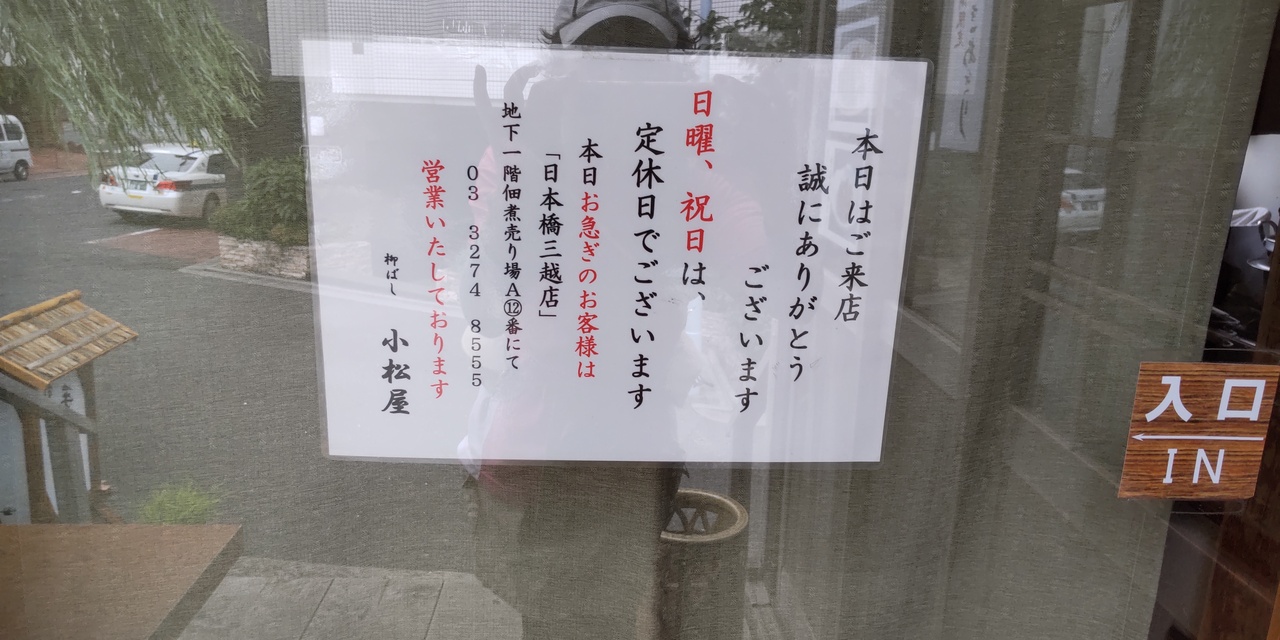 本日はご来店
誠にありがとう
ございます
日曜、祝日は、
定休日でございます
本日お急ぎのお客様は
「日本橋三越店」
地下一階佃煮売り場A⑫番にて
03 3274 8555
営業いたしております
柳ばし 小松屋
入口
IN